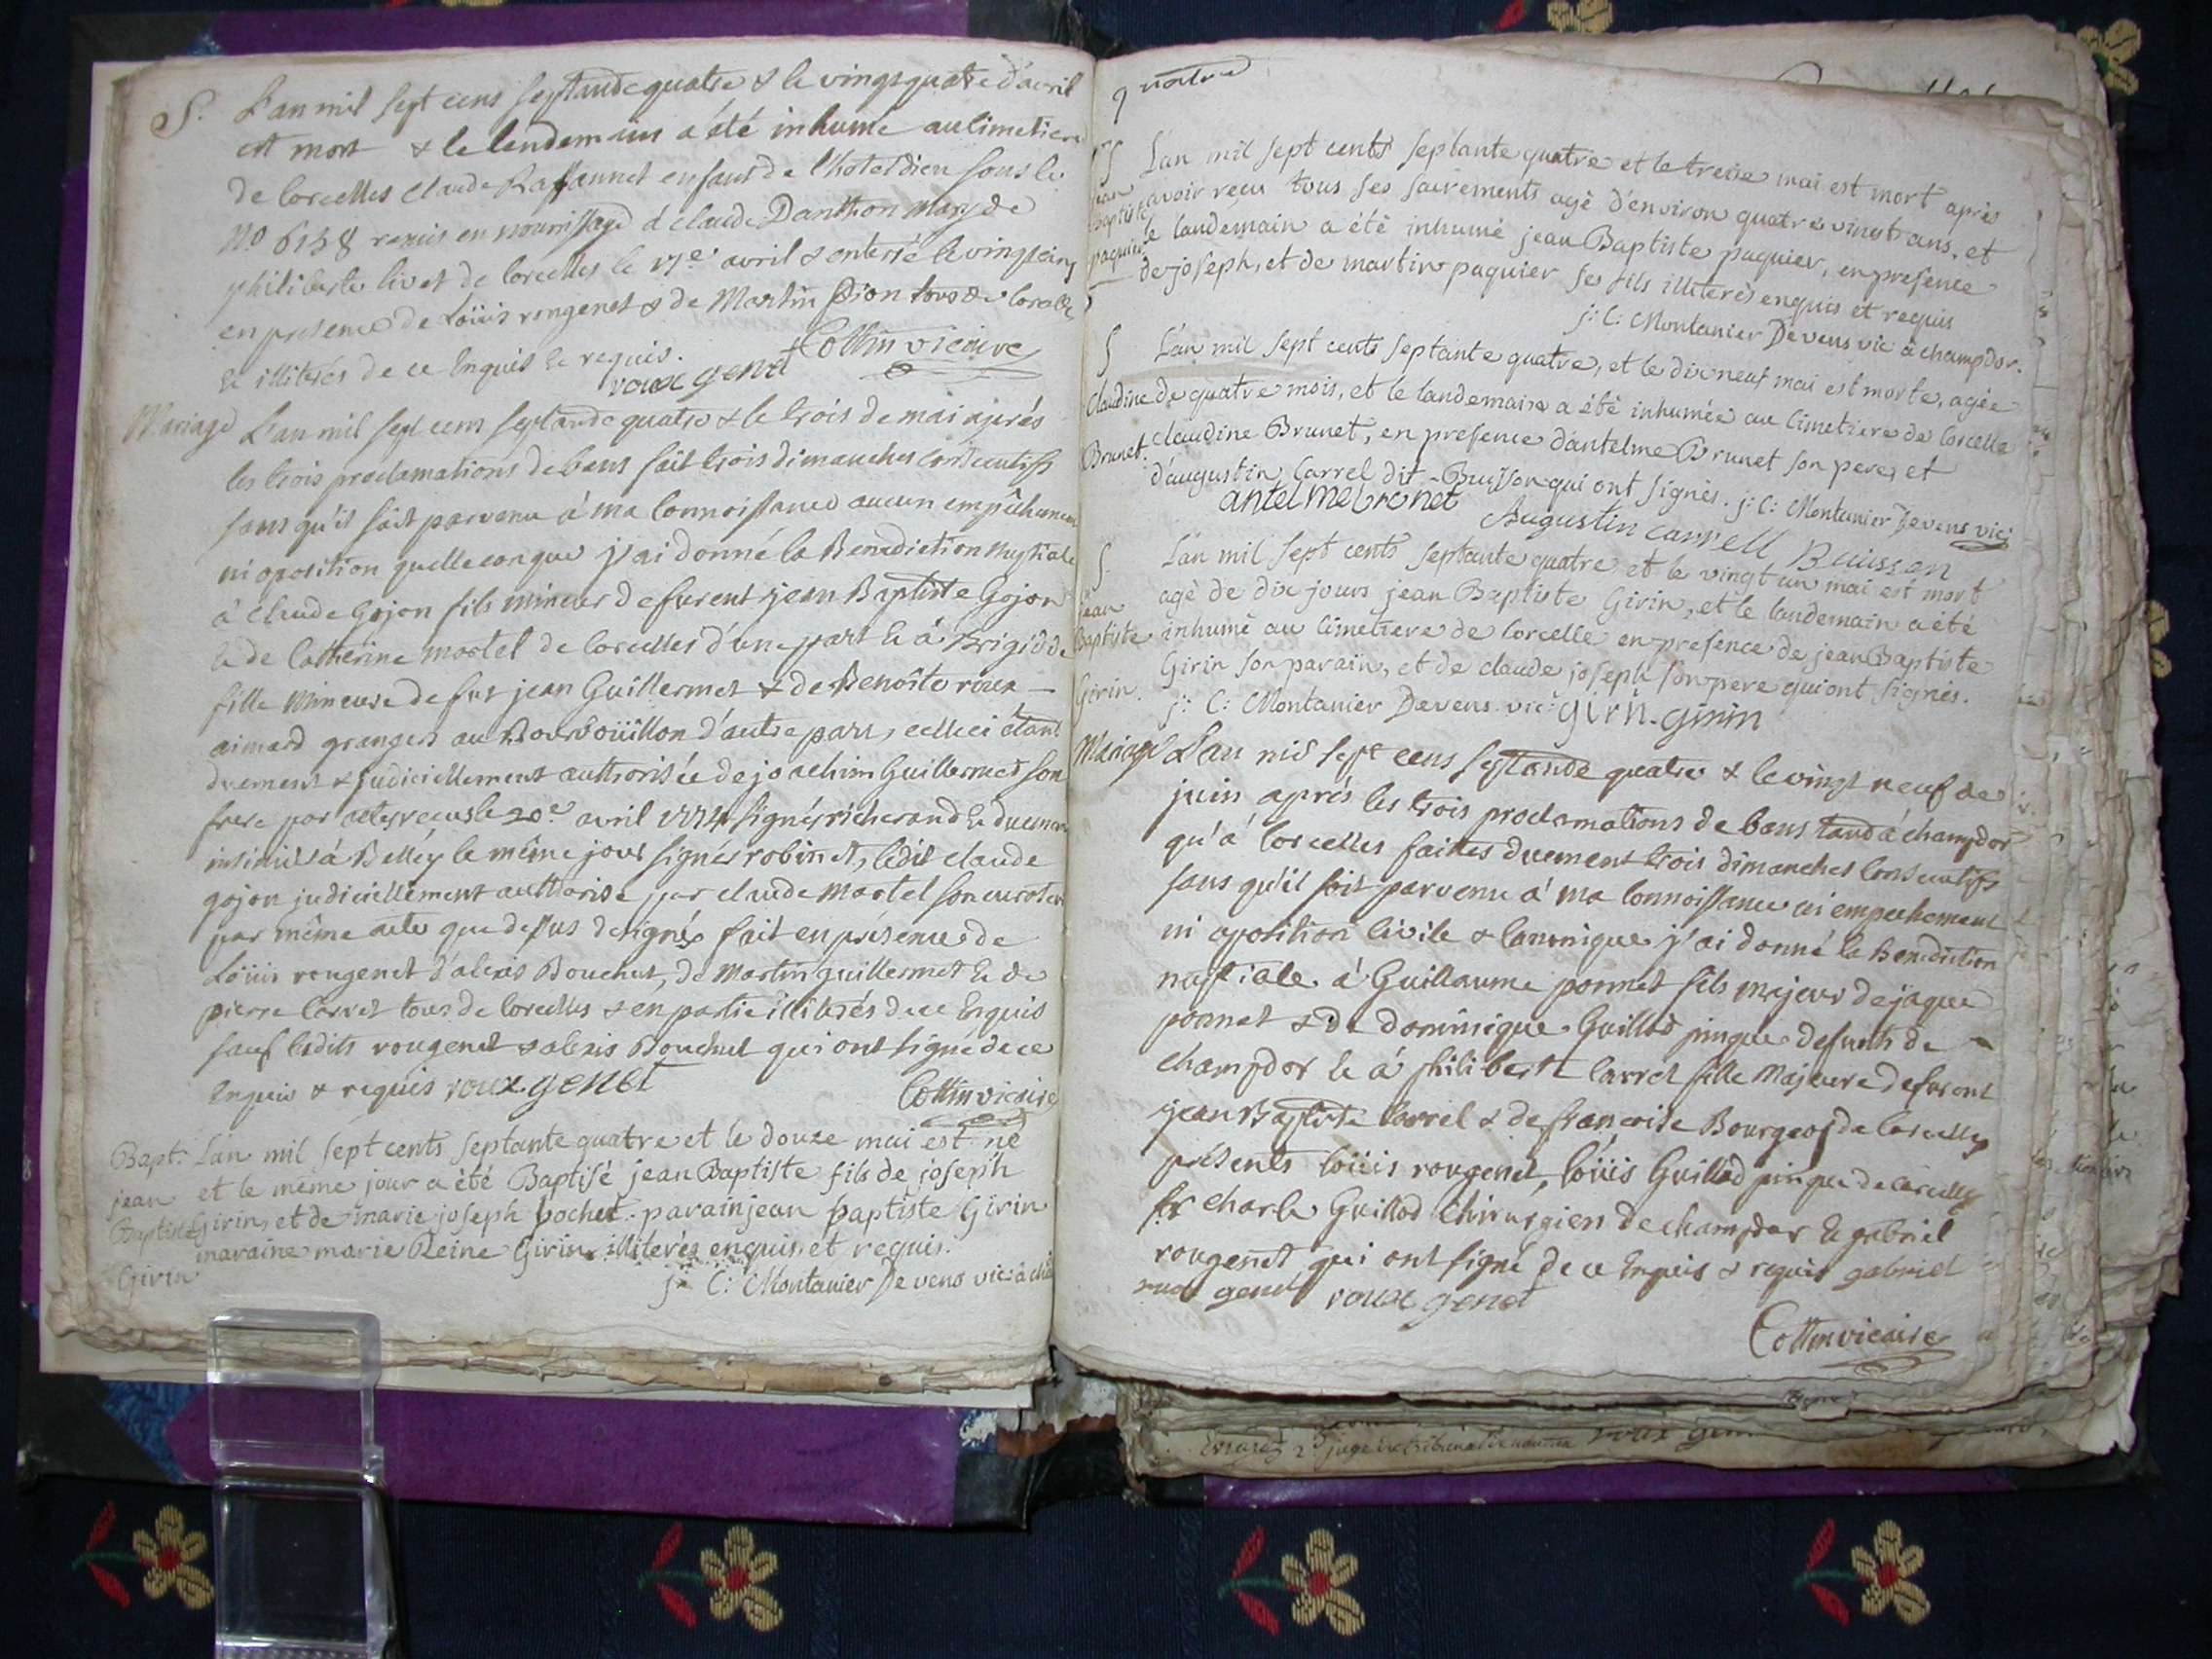 S. L'an mil sept cens septande quatre & le vingt quatre d'avril
est mort & le lendemain a été inhumé au cimetiere
de corcelles claude enfant de l'hotel dieu sous le
N.o 6158 remis en nourrissage à claude Danthon mary de
philiberte livet de corcelles le 17e avril & enterré le vingt cinq
en presence de Loüis rougenet & de Martin tous de corcelles
& illiterés de ce enquis & requis.
roux genet Cottin vicaire
Mariage L'an mil sept cens septande quatre & le trois de mai aprés
les trois proclamations de bans fait trois dimanches consecutifs
sans qu'il soit parvenu à ma connoissance aucun empêchement
ni oposition quelleconque j'ai donné la Benediction nuptiale
à claude Gojon fils mineur de furent jean Baptiste Gojon
& de Catherine martel de corcelles d'une part & à Brigide
fille mineure de fut jean Guillermet & de Benoîte roux
aimard grangers au Bourboüillon d'autre part, celle ci étant
duement & judiciellement authorisée de joachim Guillermet son
frere par actes recus le 20e avril 1774 signés richerand &
insinué à Belley le même jour signés robinet, ledit claude
gojon judiciellement authorisé par claude martel son curateur
par même acte que dessus designé fait en présence de
Loüis rougenet d'alexis Bouchet, de Martin guillermet & de
pierre Carret tous de corcelles & en partie illiterés de ce enquis
sauf ledits rougenet & alexis Bouchet qui ont signé de ce
enquis & requis roux genet Cottin vicaire
Bapt: L'an mil sept cents septante quatre et le douze mai est né
jean et le même jour a été Baptisé jean Baptiste fils de joseph
Baptiste Girin, et de marie joseph pochet. parain jean baptiste Girin
Girin maraine marie Reine Girin illiterés enquis, et requis.
j: C: Montanier Devens vic: à
quatre
S L'an mil sept cents septante quatre et le treize mai est mort après
jean avoir reçu tous ses sacrements agé d'environ quatre vingt ans, et
Baptiste le landemain a été inhumé jean Baptiste paquier, en presence
paquier de joseph, et de martin paquier ses fils illiterés enquis et requis
j: C: Montanier Devens vic à champdor.
S L'an mil sept cents septante quatre, et le dix neuf mai est morte, agée
Claudine de quatre mois, et le landemain a été inhumée au cimetiere de corcelle
Brunet. claudine Brunet, en presence d'antelme Brunet son pere, et
d'augustin Carrel dit Buisson qui ont signés. j: C: Montanier Devens vic:
antelme bronet Augustin carrell Buisson
S. L'an mil sept cents septante quatre, et le vingt un mai est mort
jean agé de dix jours jean Baptiste Girin, et le landemain a été
Baptiste inhumé au cimetiere de corcelle en presence de jean Baptiste
Girin. Girin son parain, et de claude joseph son pere qui ont signés.
j: C: Montanier Devens. vic: girin. girin
Mariage L'an mil sept cens septande quatre & le vingt neuf de
juin aprés les trois proclamations de bans tand à champdor
qu'à corcelles faites duement trois dimanches consecutifs
sans qu'il soit parvenu à ma connoissance ni empechement
ni oposition civile & canonique j'ai donné la Benediction
nuptiale à Guillaume ponnet fils majeur de jaque
ponnet & de dominique Guillod pingue defunts de
champdor & à philiberte Carrel fille Majeure de furent
jean Baptiste Carrel & de françoise Bourgeos de corcelles
présents loüis rougenet, loüis Guillod pingue de corcelles
sr charle Guillod chirurgien de champdor & gabriel
rougenet qui ont signé de ce enquis & requis gabriel
roux genet roux genet
Cottin vicaire